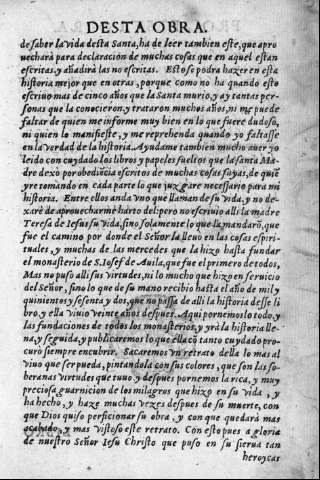 DESTA OBRA.
de saber la vida desta Santa, ha de leer tambien este, que apro
uechara para declaracion de muchas cosas que en aquel estan
escritas, y añadira las no escritas. Esto se podra hazer en esta
historia mejor que en otras, porque como no ha quando esto
escriuo mas de cinco años que la Santa murio, y ay tantas per-
sonas que la conocieron, y trataron muchos años, ni me puede
faltar de quien me informe muy bien en lo que fuere dudoso,
ni quien lo manifieste, y me reprehenda quando yo faltasse
en la verdad de la historia. Ayudame tambien mucho auer yo
leido con cuydado los libros y papeles sueltos que la Santa Ma
dre dexò por obediẽcia escritos de muchas cosas suyas, de quiẽ
yre tomando en cada parte lo que juzgare necessario para mi
historia. Entre ellos anda vno que llaman de su vida, y no de-
xarè de aprouecharme harto del: pero no escriuio alli la madre
Teresa de Iesus su vida, sino solamente lo que la mandarõ, que
fue el camino por donde el Señor la lleuo en las cosas espiri-
tuales, y muchas de las mercedes que la hizo hasta fundar
el monasterio de S. Iosef de Auila, que fue el primero de todos,
Mas no puso alli sus virtudes, ni lo mucho que hizo en seruicio
del Señor, sino lo que de su mano recibio hasta el año de mil y
quinientos y sesenta y dos, que no passa de alli la historia desse li
bro, y ella viuio veinte años despues. Aqui pornemos lo todo, y
las fundaciones de todos los monasterios, y yrà la historia lle-
na, y seguida, y publicaremos lo que ella cõ tanto cuydado pro-
curò siempre encubrir. Sacaremos vn retrato della lo mas al
viuo que ser pueda, pintandola con sus colores, que son las so-
beranas virtudes que tuuo y despues pornemos la rica, y muy
preciosa guarnicion de los milagros que hizo en su vida, y
ha hecho, y haze muchas vezes despues de su muerte, con
que Dios quiso perficionar su obra, y con que quedarà mas
acabado, y mas vistoso este retrato. Con esto pues a gloria
de nuestro Señor Iesu Christo que puso en su sierua tan
heroycas